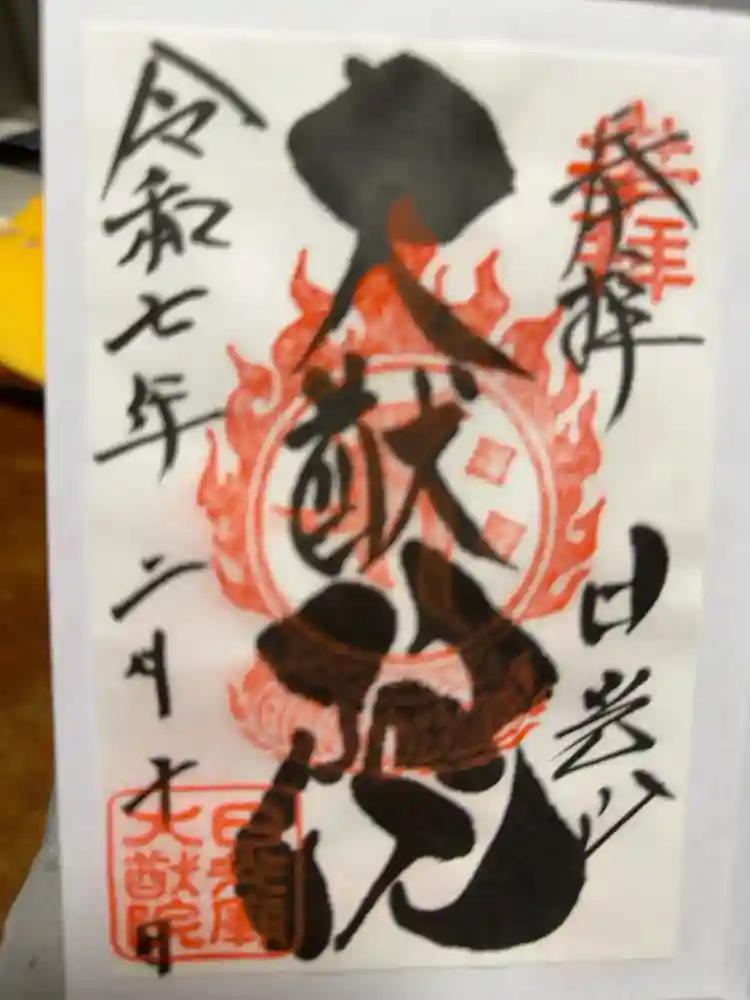 奉拝
日光山
大猷院
令和七年
二月十日
日光廟
大猷院